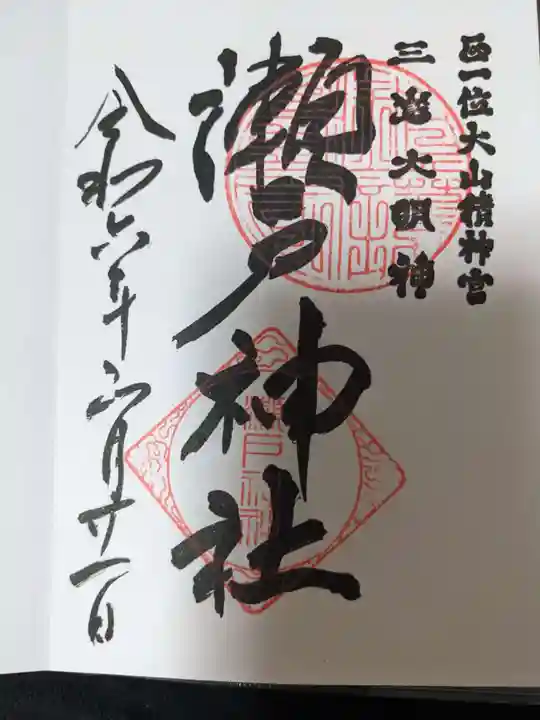 正一位大山積神宮
三島大明神
瀬戸神社
令和六年 月廿一日